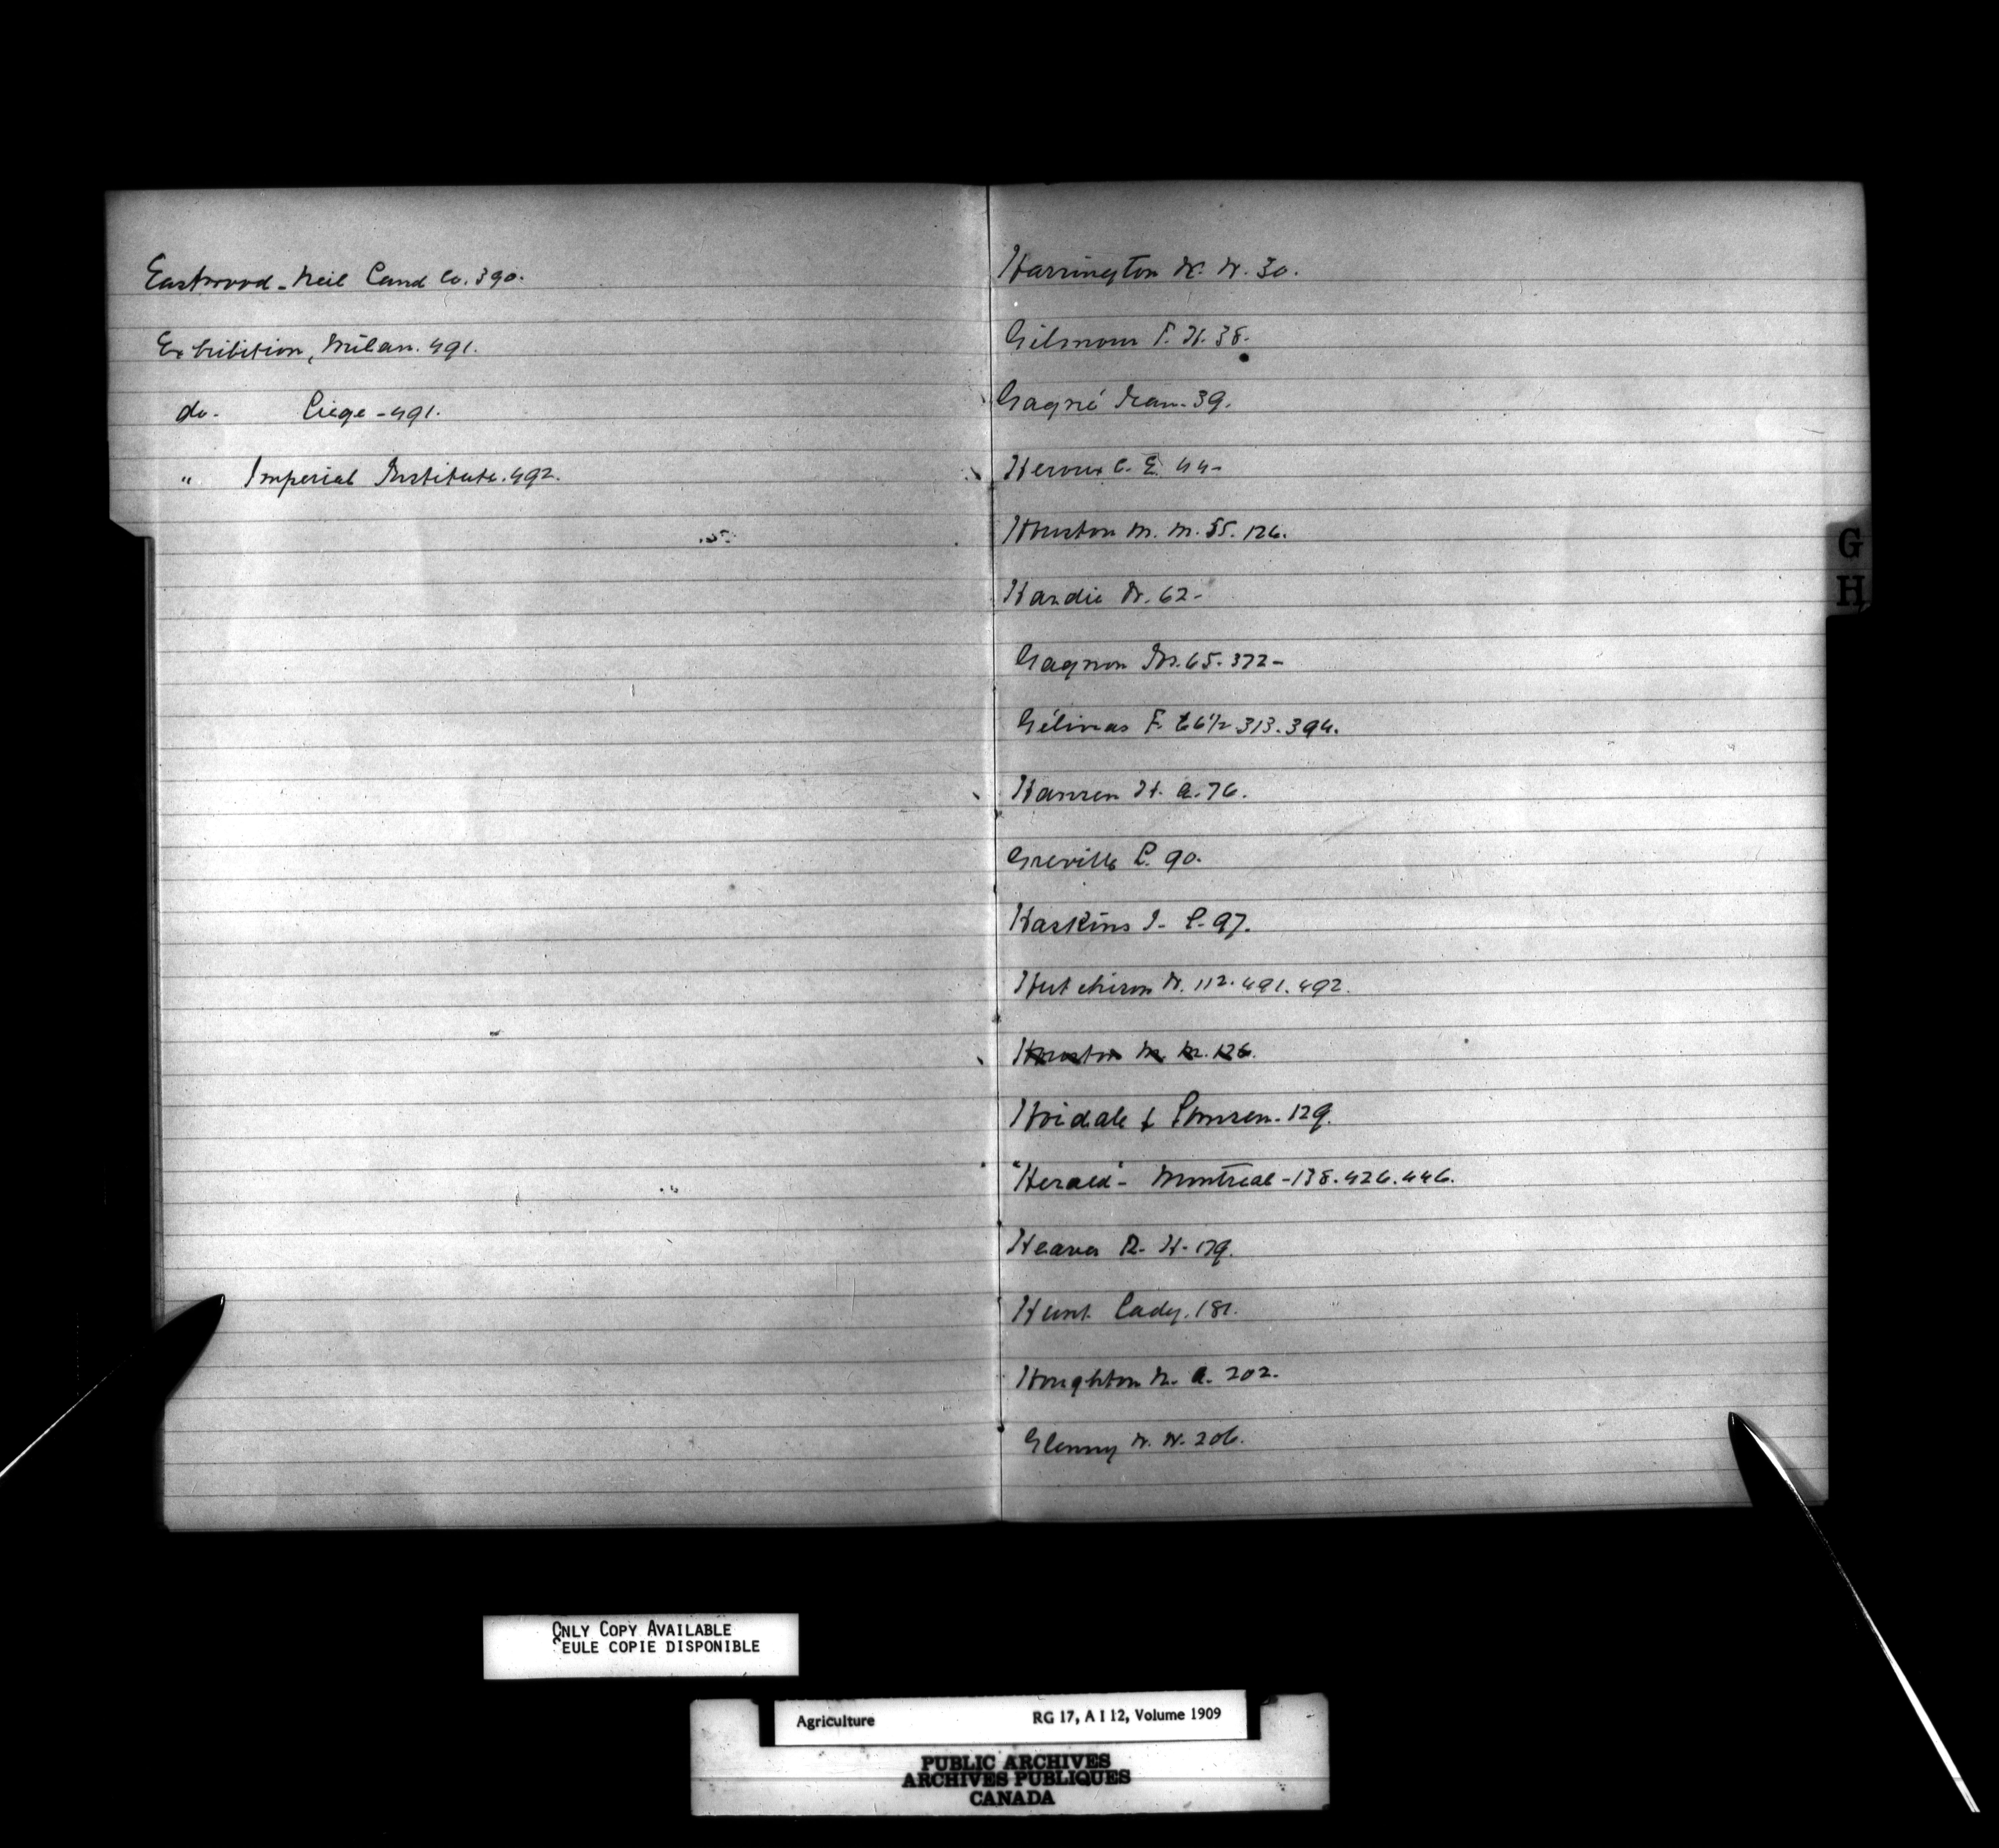 Eastwood - Neil Land Co. 390.
Exhibition, Milan. 491.
do - Liege - 491.
" Imperial Institute. 492.
Harrington W. W. 30.
Gilmour F. H. 38.
Gagné Jean - 39.
Heroux C. E. 44 -
Houston M. M. 55. 126.
Hardie W. 62 -
Gagnon 65. 372 -
Gélinas F. 66½ 313. 394.
Hansen H. A. 76.
Greville L. 90.
Haskins J - L - 97.
Hutchison W. 112. 491. 492.
Houston M. M. 126.
Hoidale & 129.
"Herald" - Montreal - 138. 426. 446.
Heaven R - H - 179.
Hunt Lady. 181.
Houghton N. A. 202.
Glenny W. W. 206.
G
H
ONLY COPY AVAILABLE
SEULE COPIE DISPONIBLE
Agriculture RG 17, A I 12, Volume 1909
PUBLIC ARCHIVES
ARCHIVES PUBLIQUES
CANADA